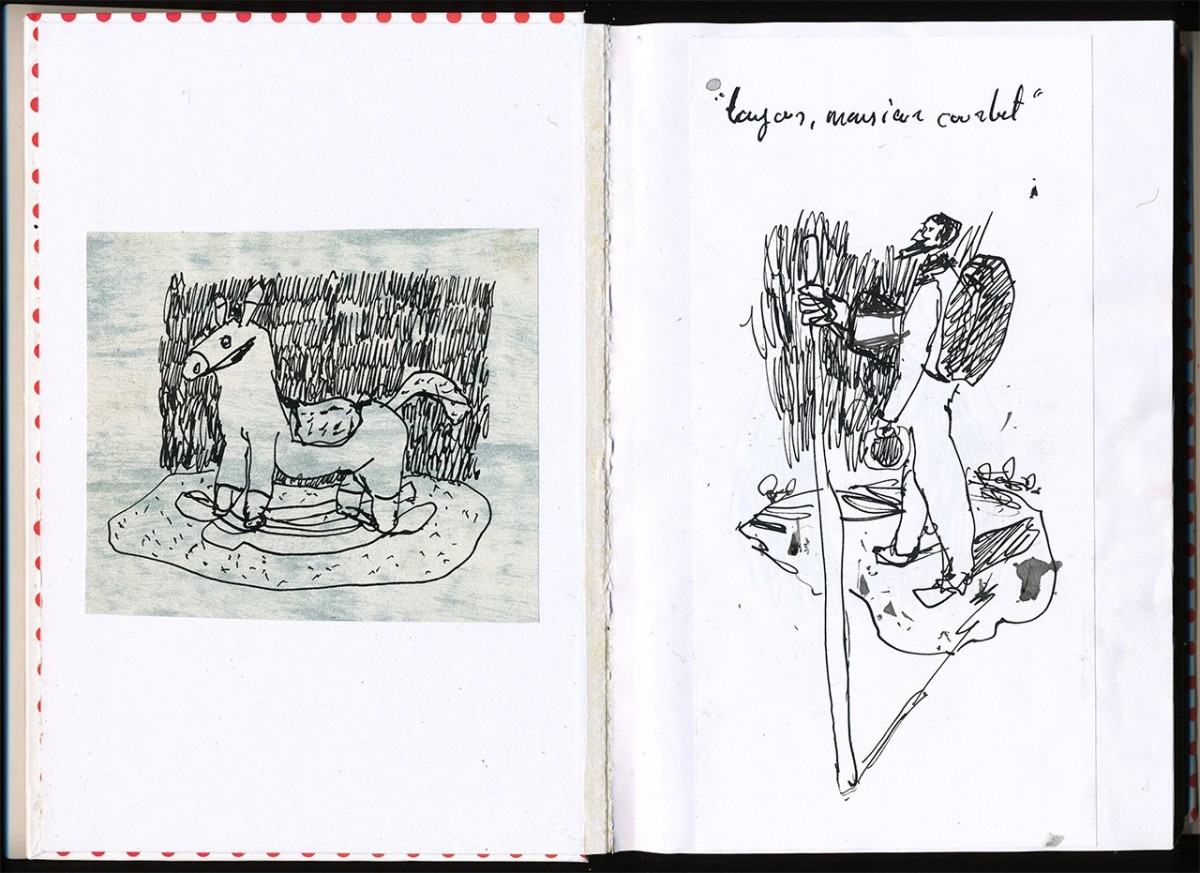 "bonjour, monsieur courbet"